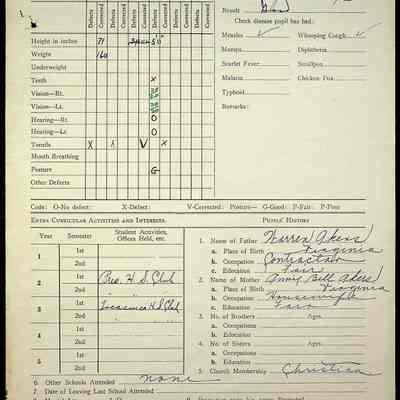 Defects Corrected Defects Corrected Defects Corrected Defects Corrected Defects Corrected Defects Corrected
Result
Check disease pupil has had:
Height in inches 71
Measles ✓ Whooping Cough ✓
Weight 160
Mumps Diphtheria
Underweight
Scarlet Fever Smallpox
Teeth X
Malaria Chicken Pox
Vision—Rt.
Typhoid
Vision—Lt.
Remarks:
Hearing—Rt. O
Hearing—Lt. O
Tonsils X X V X
Mouth Breathing
Posture G
Other Defects
Code: O-No defect: X-Defect: V-Corrected: Posture— G-Good: F-Fair: P-Poor
Extra Curricular Activities and Interests.
Pupils' History
Year Semester Student Activities, Offices Held, etc.
1. Name of Father Warren Akers
a. Place of Birth Virginia
1 1st
b. Occupation Contractor
2nd
c. Education Fair
2 1st Pres. H. S. Club
2. Name of Mother Annie Bell Akers
2nd " " "
a. Place of Birth Virginia
b. Occupation Housewife
3 1st Treasurer H.S. Club
c. Education Fair
2nd " " "
3. No. of Brothers Ages
a. Occupations
4 1st
b. Education
2nd
4. No. of Sisters Ages
a. Occupations
5 1st
b. Education
2nd
5. Church Membership Christian
6. Other Schools Attended none
7. Date of Leaving Last School Attended